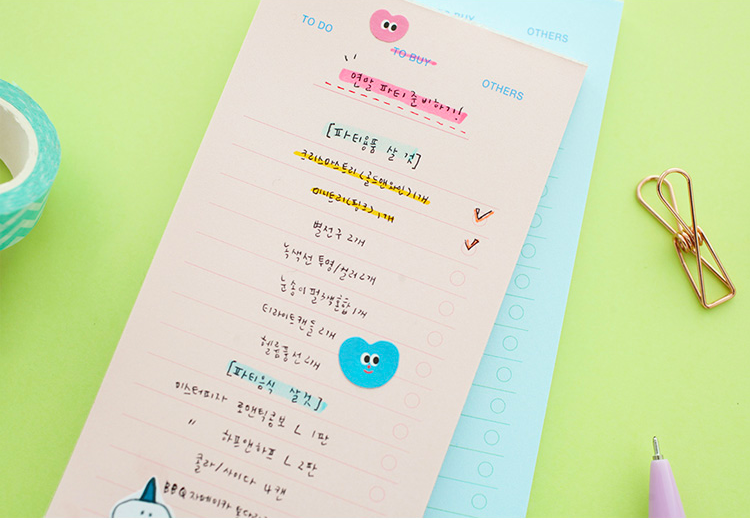 TO DO
TO BUY
OTHERS
TO BUY
OTHERS
연말 파티 준비하기!
[파티용품 살 것]
크리스마스트리(골드앤와인) 1개
미니트리(핑크) 1개
별전구 2개
녹색선 투명/컬러 2개
눈송이 펄 3색혼합 1개
티라이트캔들 2개
헬륨풍선 2개
[파티음식 살것]
미스터피자 로맨틱콤보 L 1판
" 하프앤하프 L 2판
콜라/사이다 4캔
BBQ 자메이카 통다리